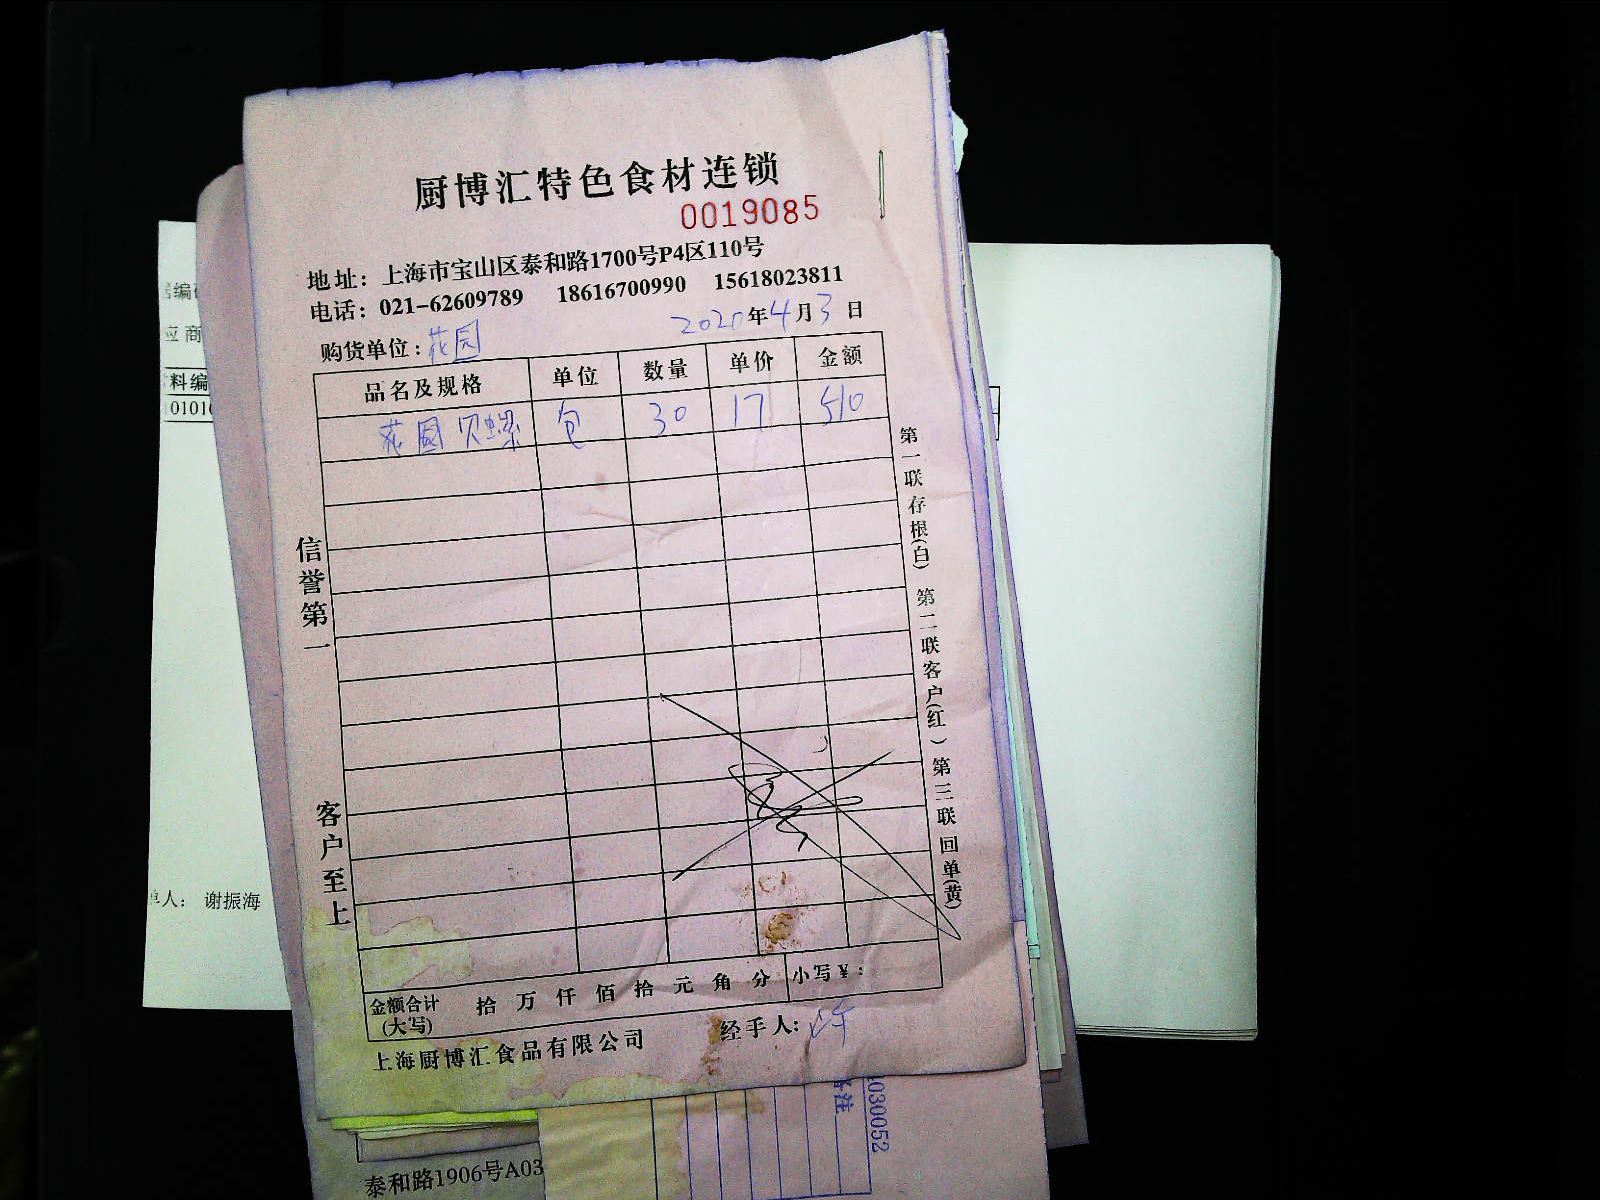 厨博汇特色食材连锁
0019085
地址：上海市宝山区泰和路1700号P4区110号
电话：021-62609789 18616700990 15618023811
购货单位：花园 2020年4月3日
品名及规格 单位 数量 单价 金额
花園贝螺 包 30 17 510
信誉第一
客户至上
第一联存根(白) 第二联客户(红) 第三联回单(黄)
金额合计(大写) 拾 万 仟 佰 拾 元 角 分 小写￥：
上海厨博汇食品有限公司 经手人：许
应商
料编
单人： 谢振海
030052
泰和路1906号A03